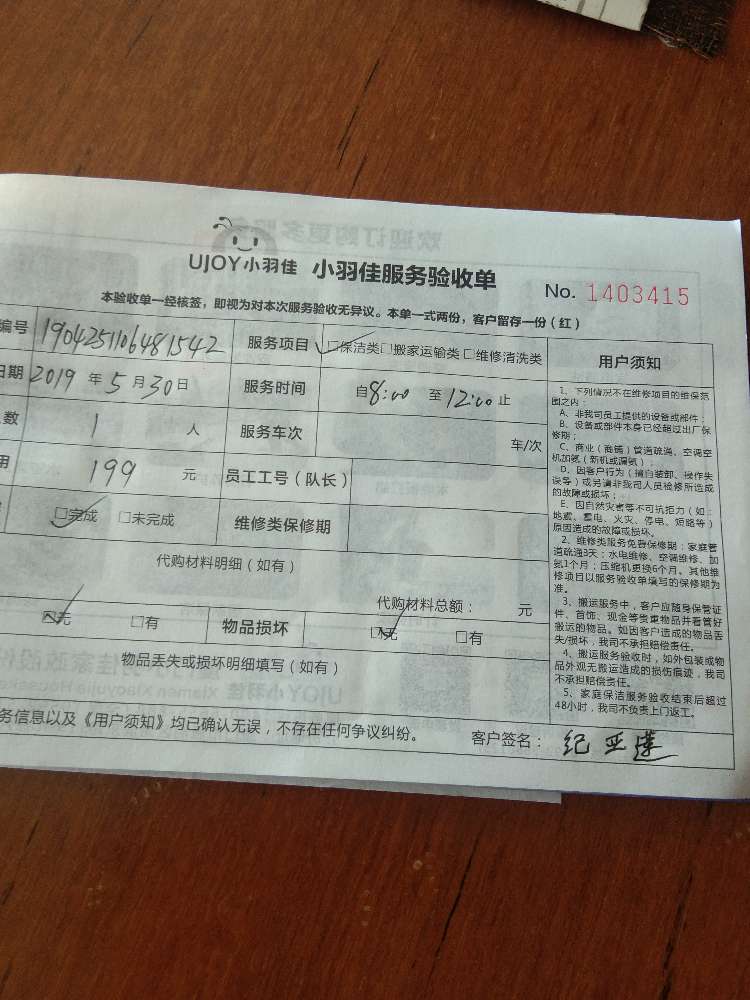 UJOY小羽佳 小羽佳服务验收单 No. 1403415
本验收单一经核签，即视为对本次服务验收无异议。本单一式两份，客户留存一份（红）
编号 1904251106481542 服务项目 □保洁类□搬家运输类□维修清洗类
日期 2019 年 5 月 30 日 服务时间 自 8:00 至 12:00 止
数 1 人 服务车次 车/次
用 199 元 员工工号（队长）
□完成 □未完成 维修类保修期
代购材料明细（如有）
代购材料总额： 元
□无 □有 物品损坏 □无 □有
物品丢失或损坏明细填写（如有）
务信息以及《用户须知》均已确认无误，不存在任何争议纠纷。 客户签名： 纪亚莲
用户须知
1、下列情况不在维修项目的维保范
围之内：
A、非我司员工提供的设备或部件；
B、设备或部件本身已经超过出厂保
修期；
C、商业（商铺）管道疏通、空调空
机加氨（新机或漏氨）；
D、因客户行为（擅自装卸、操作失
误等）或另请非我司人员检修所造成
的故障或损坏；
E、因自然灾害等不可抗拒力（如：
地震、雷电、火灾、停电、短路等）
原因造成的故障或损坏。
2、维修类服务免费保修期：家庭管
道疏通3天；水电维修、空调维修、加
氨1个月；压缩机更换6个月。其他维
修项目以服务验收单填写的保修期为
准。
3、搬运服务中，客户应随身保管证
件、首饰、现金等贵重物品并看管好
搬运的物品。如因客户造成的物品丢
失/损坏，我司不承担赔偿责任。
4、搬运服务验收时，如外包装或物
品外观无搬运造成的损伤痕迹，我司
不承担赔偿责任。
5、家庭保洁服务验收结束后超过
48小时，我司不负责上门返工。